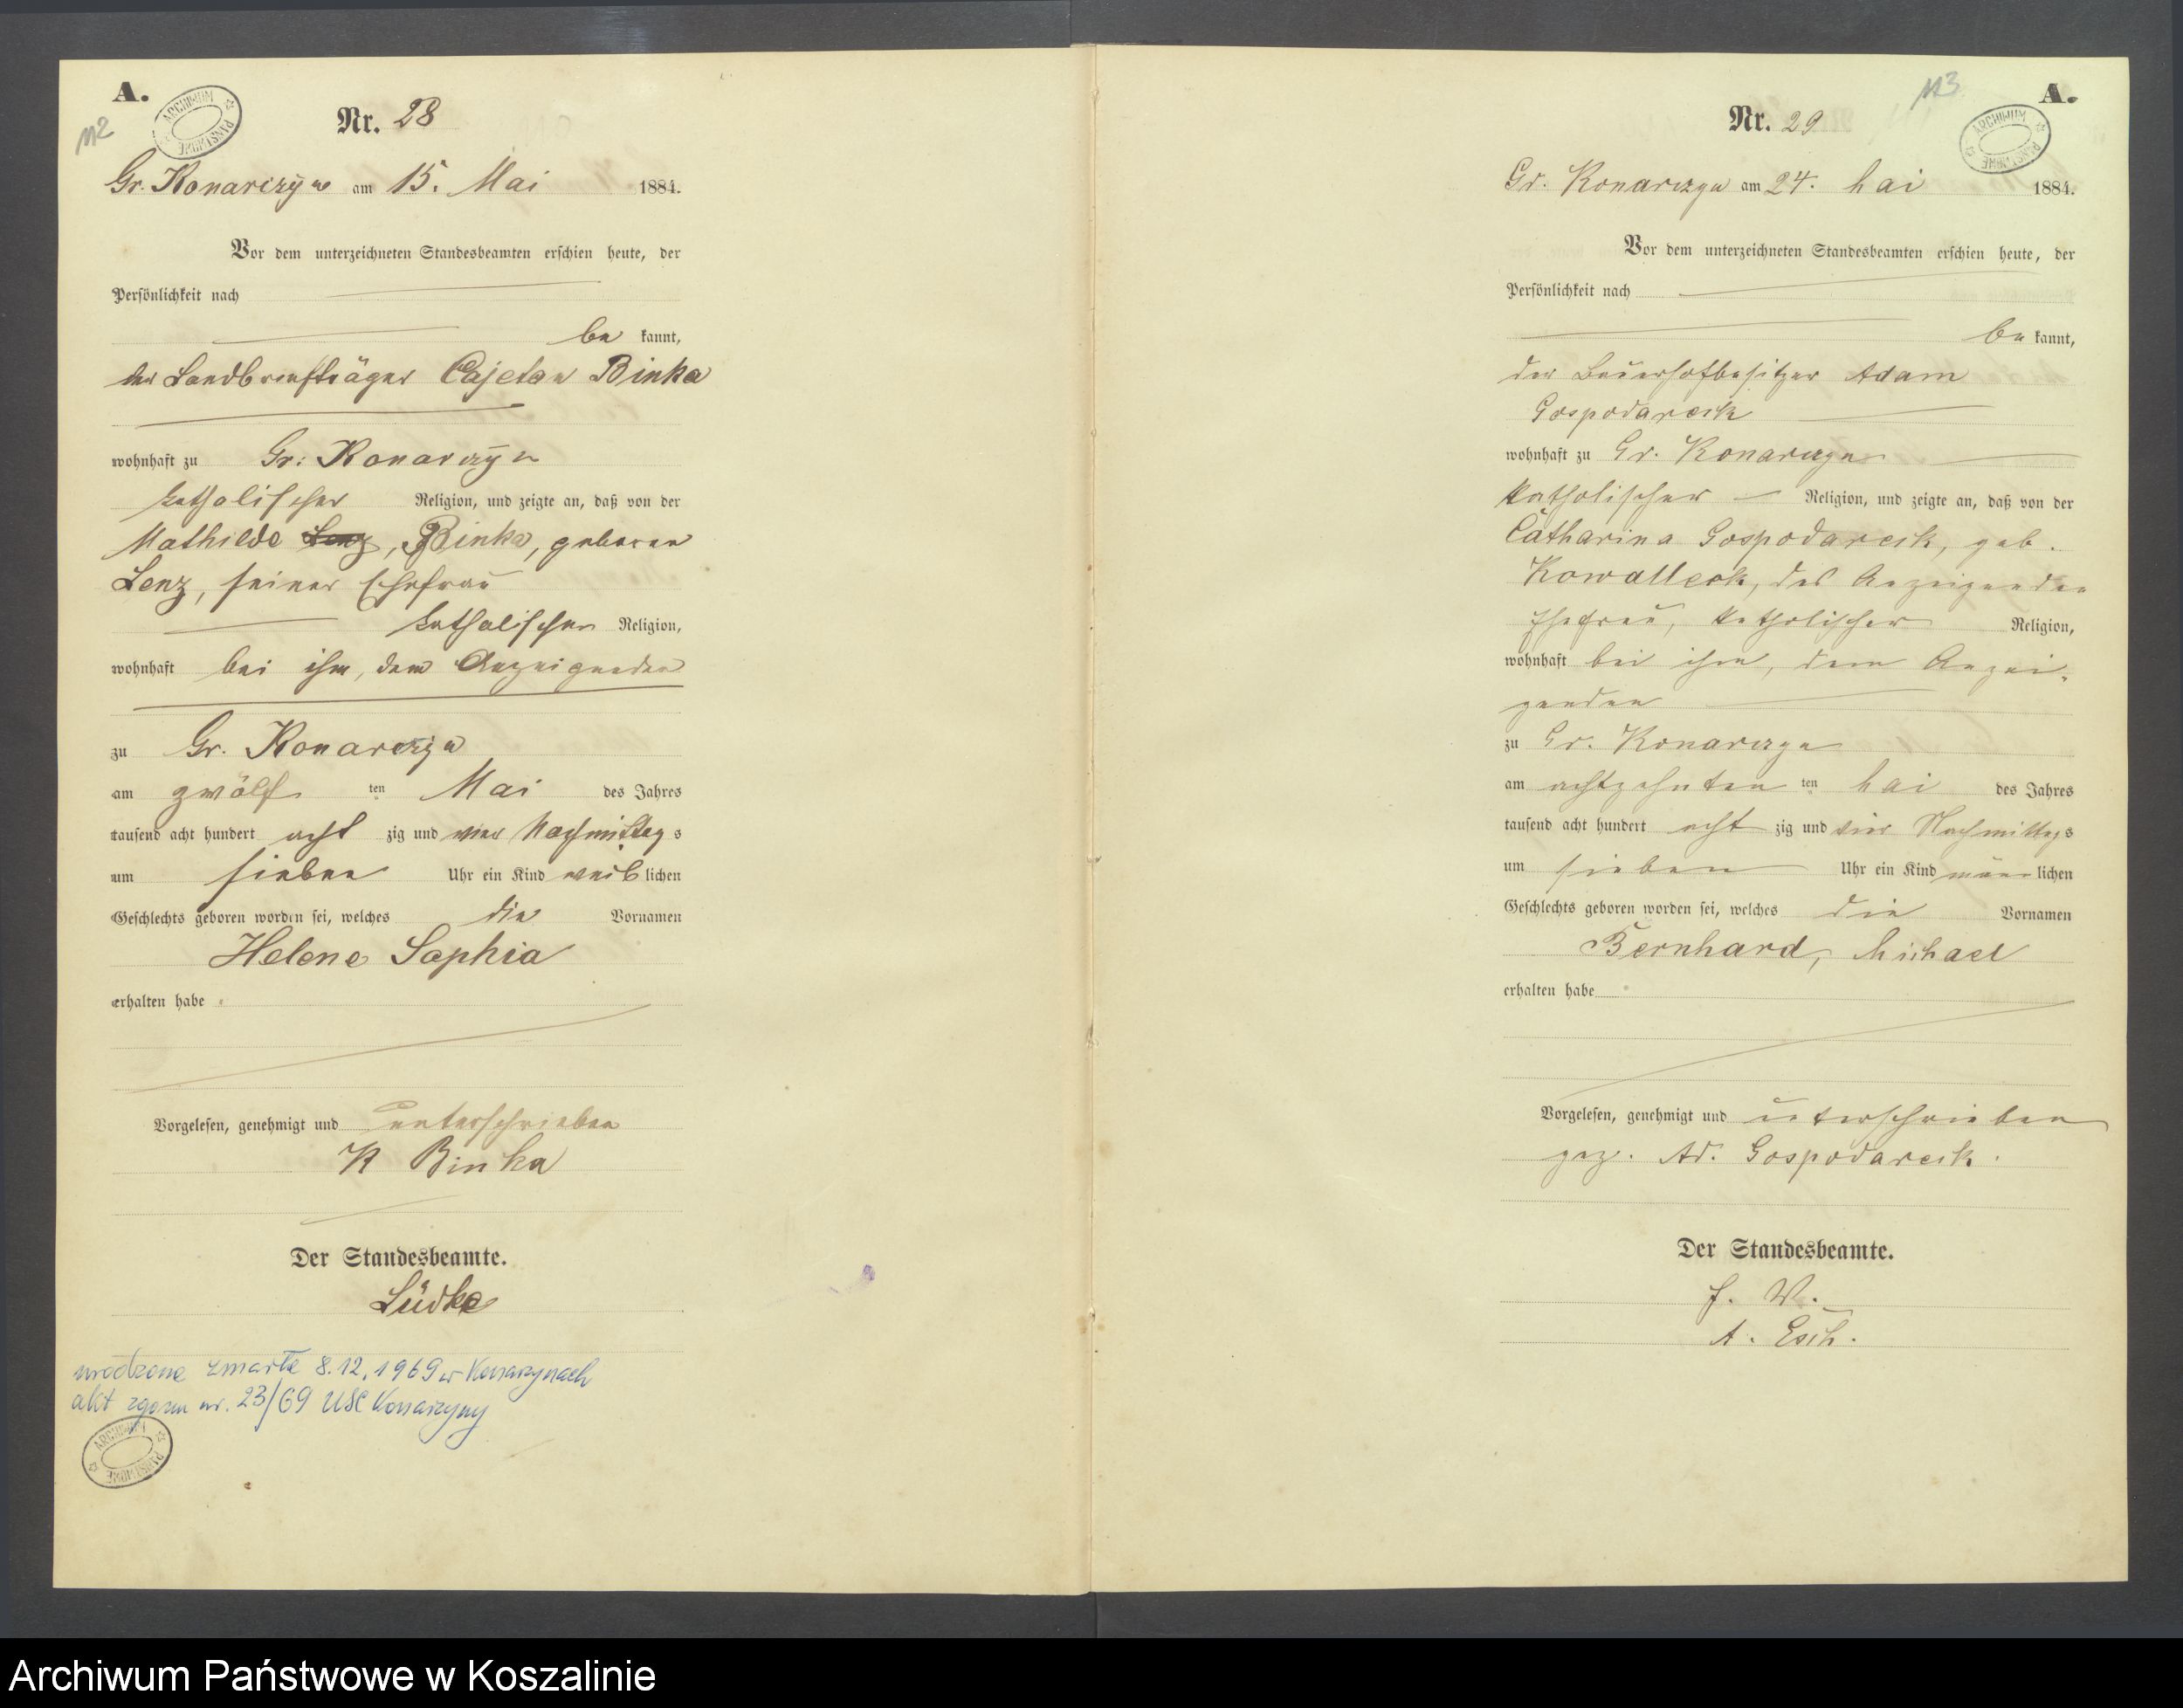 A.
112
ARCHIWUM PAŃSTWOWE
Nr. 28
Gr. Konarczyn am 15. Mai 1884.
Vor dem unterzeichneten Standesbeamten erschien heute, der
Persönlichkeit nach
be kannt,
der Landbriefträger Cajetan Binka
wohnhaft zu Gr. Konarczyn
katholischer Religion, und zeigte an, daß von der
Mathilde Lenz, Binka, geboren
Lenz, seiner Ehefrau
katholischer Religion,
wohnhaft bei ihm, dem Anzeigenden
zu Gr. Konarczyn
am zwölf ten Mai des Jahres
tausend acht hundert acht zig und vier Nachmittag s
um sieben Uhr ein Kind weib lichen
Geschlechts geboren worden sei, welches die Vornamen
Helene Sophia
erhalten habe
Vorgelesen, genehmigt und unterschrieben
K Binka
Der Standesbeamte.
Lüdke
zmarła 8.12.1969 w Konarzynach
akt zgonu nr. 23/69 USC Konarzyny
ARCHIWUM PAŃSTWOWE
113
A.
ARCHIWUM PAŃSTWOWE
Nr. 29
Gr. Konarczyn am 24. Mai 1884.
Vor dem unterzeichneten Standesbeamten erschien heute, der
Persönlichkeit nach
be kannt,
der Bauerhofbesitzer Adam
Gospodarek
wohnhaft zu Gr. Konarczyn
katholischer Religion, und zeigte an, daß von der
Catharina Gospodarek, geb.
Kowalleck, des Anzeigenden
Ehefrau, katholischer Religion,
wohnhaft bei ihm, dem Anzei-
genden
zu Gr. Konarczyn
am achtzehnten ten Mai des Jahres
tausend acht hundert acht zig und vier Nachmittag s
um sieben Uhr ein Kind männ lichen
Geschlechts geboren worden sei, welches die Vornamen
Bernhard, Michael
erhalten habe
Vorgelesen, genehmigt und unterschrieben
gez. Ad. Gospodarek.
Der Standesbeamte.
J. V.
A. Esch.
Archiwum Państwowe w Koszalinie